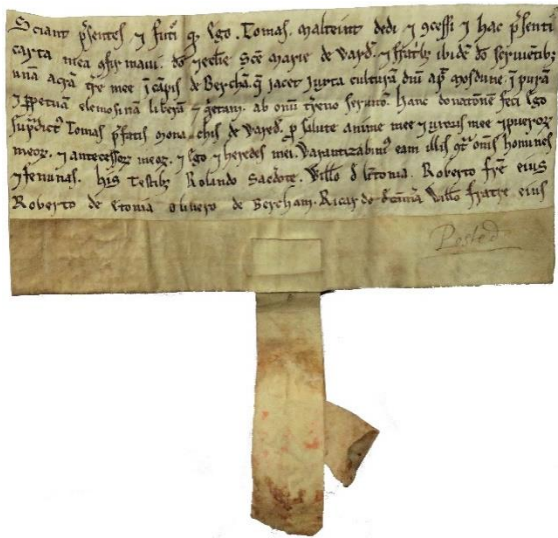 Sciant p̄sentes ⁊ futi q̄ ego. Tomas. malteint dedi ⁊ ꝯcessi ⁊ hac p̄senti
carta mea ꝯfirmavi. dō ⁊ ecclie Scē Marie de Ward. ⁊ fr̄ib; ibidē dō servientib;
unā acrā t̄re mee ī cāpis de Bercham. q̄ jacet juxta culturā ī purā
⁊ ꝑpetuā elemosinā liberā ⁊ q̄etam. ab omī t̄reno servitio. Hanc donationē feci ego
sup̄dict; Tomas p̄fatis monachis de Wared. ꝓ salute anime mee ⁊ uxoris mee ⁊ pueroꝝ
meoꝝ. ⁊ antecessoꝝ meoꝝ. ⁊ ego ⁊ heredes mei. Warantizabim; eam illis ꝯ̄ om̄s homines
⁊ feminas. His Testib; Rolando Sac̄dote. Will̄o Roberto fr̄e eius
Roberto de olivero de Bercham. Ricardo Will̄o fratre eius